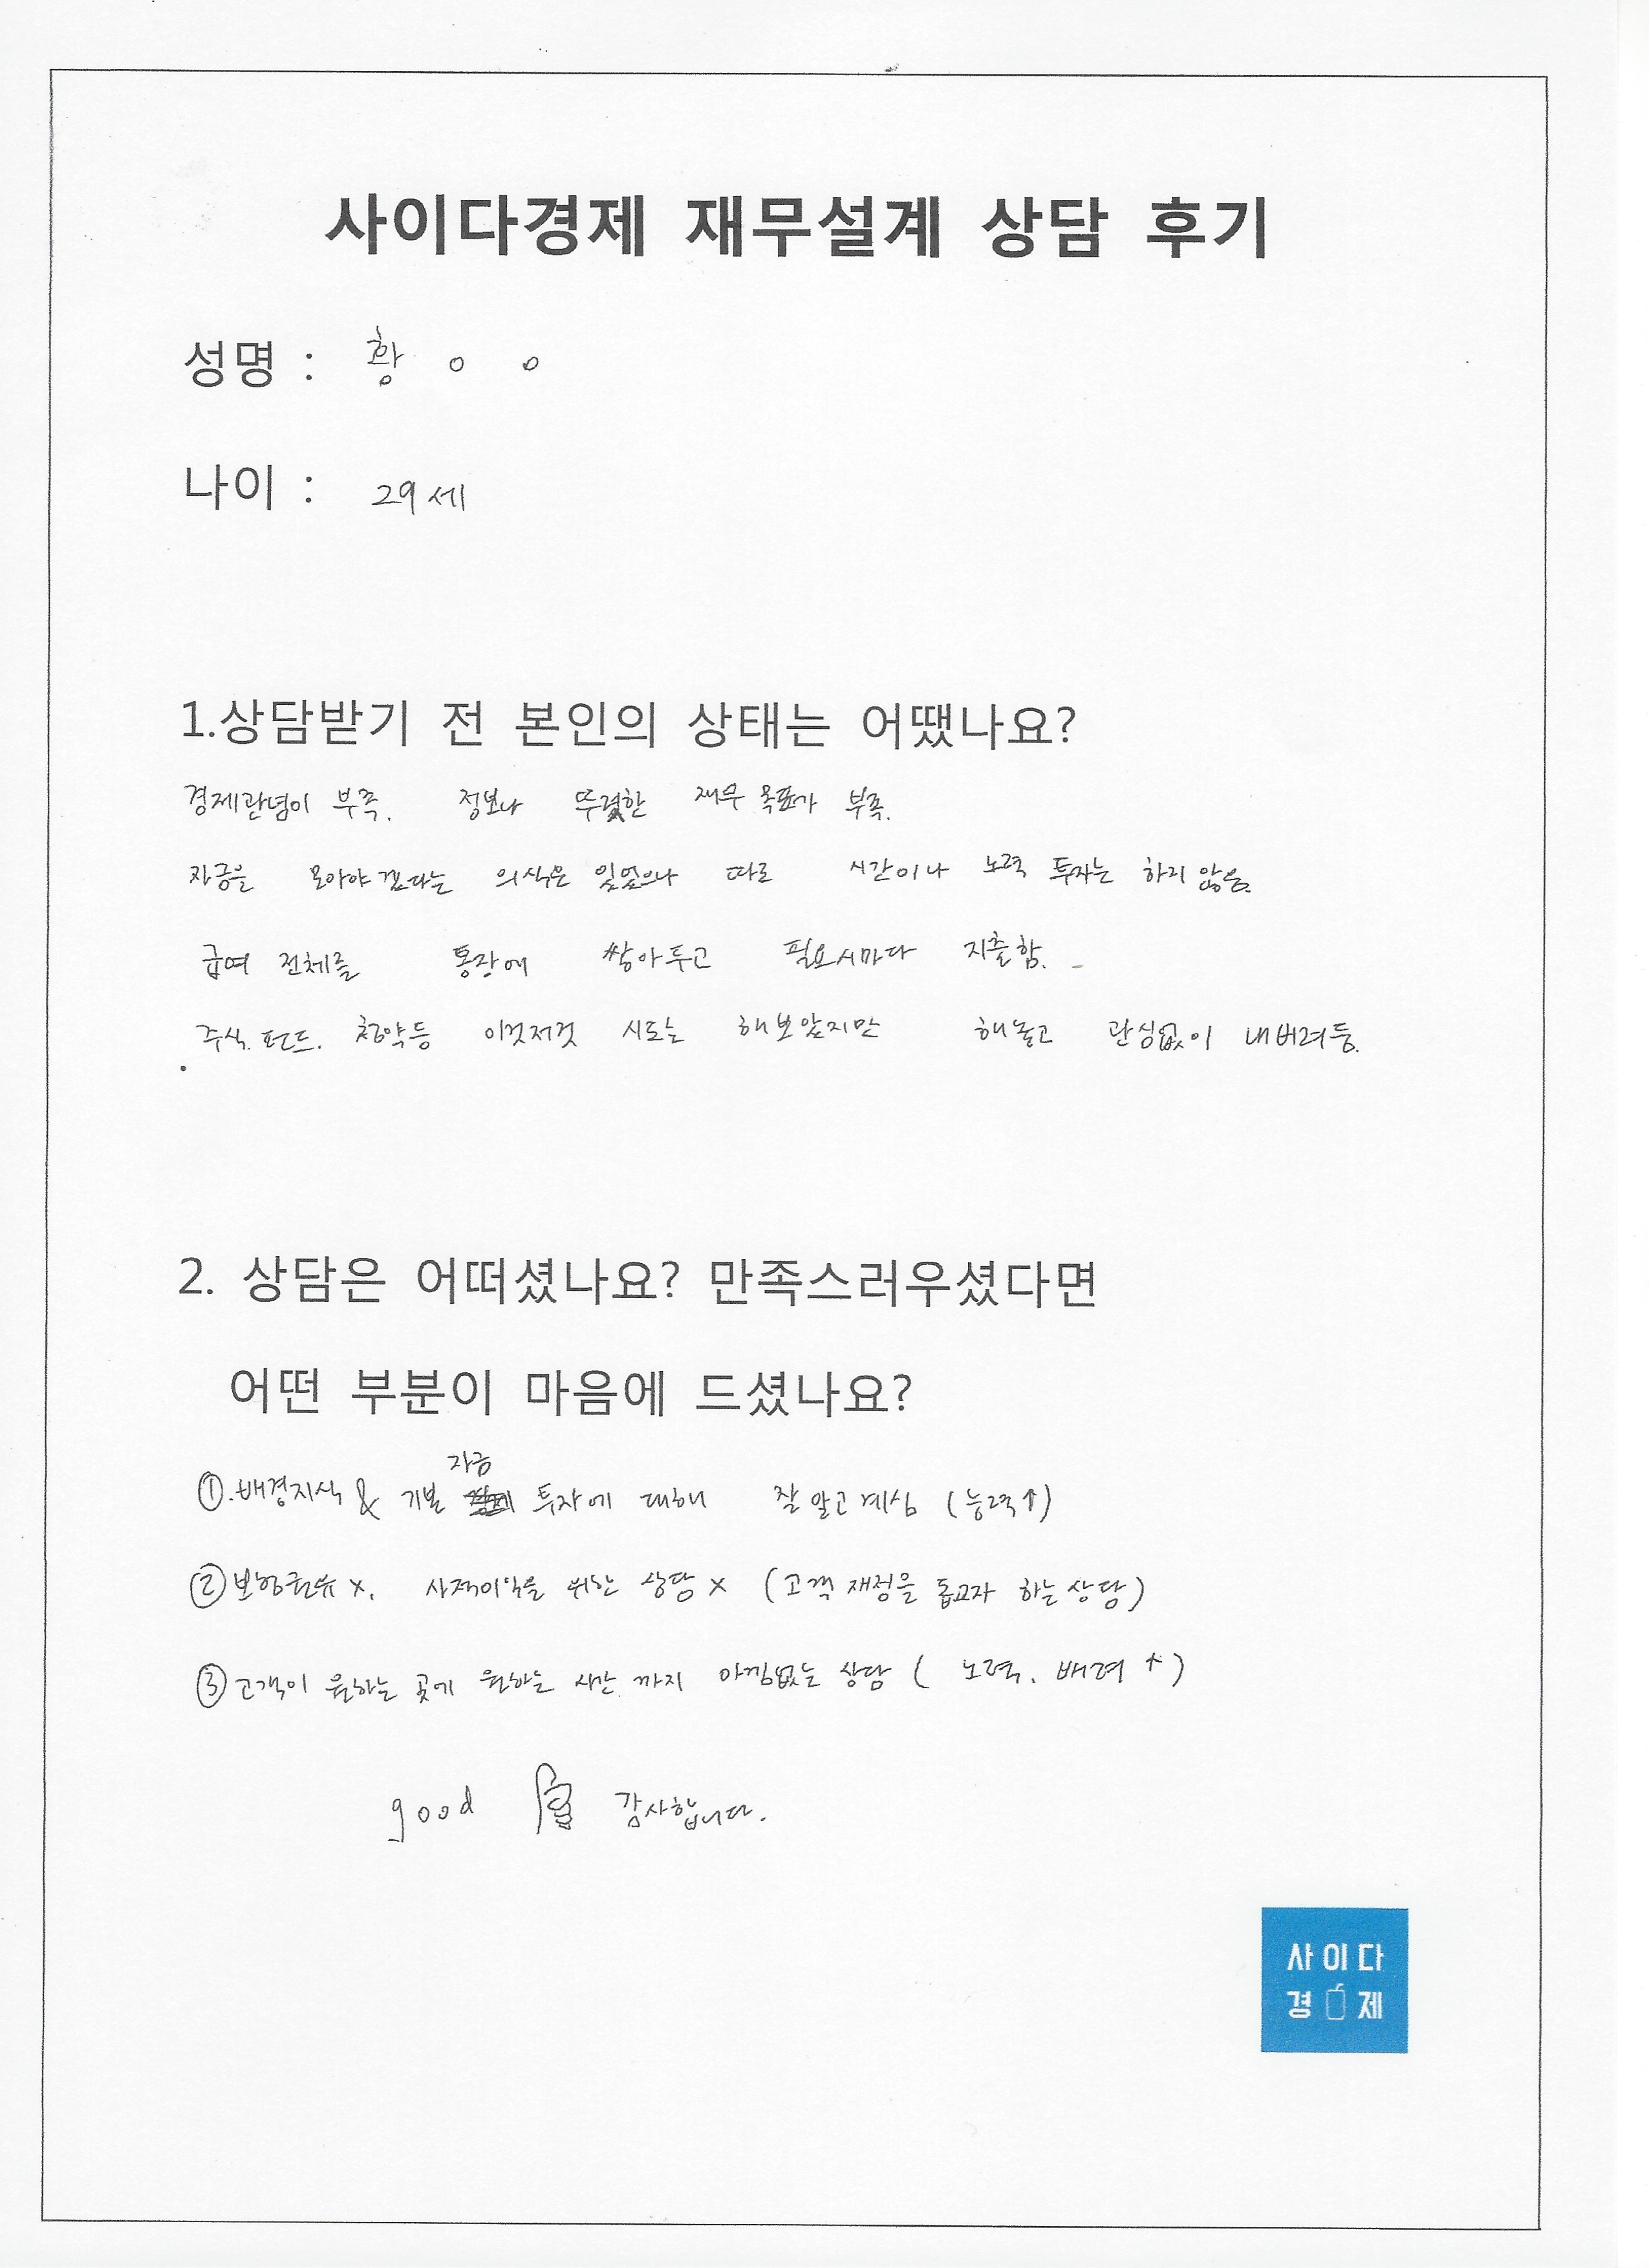 사이다경제 재무설계 상담 후기
성명 : 황 ㅇ ㅇ
나이 : 29세
1.상담받기 전 본인의 상태는 어땠나요?
경제관념이 부족. 정보나 뚜렷한 재무 목표가 부족.
자금을 모아야겠다는 의식은 있었으나 따로 시간이나 노력 투자는 하지 않음.
급여 전체를 통장에 쌓아두고 필요시마다 지출함.
주식. 펀드. 청약등 이것저것 시도는 해보았지만 해놓고 관심없이 내버려둠.
2. 상담은 어떠셨나요? 만족스러우셨다면
어떤 부분이 마음에 드셨나요?
자금
①.배경지식 & 기본 투자에 대해 잘 알고 계심 (능력↑)
②보험권유 x. 사적이익을 위한 상담 x (고객 재정을 돕고자 하는 상담)
③고객이 원하는 곳에 원하는 시간 까지 아낌없는 상담 ( 노력. 배려 ↑)
good 감사합니다.
사이다
경제